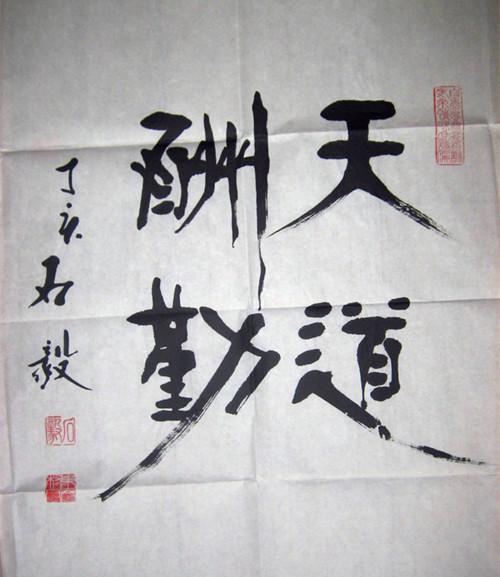 天道
酬勤
丁亥石毅
石毅